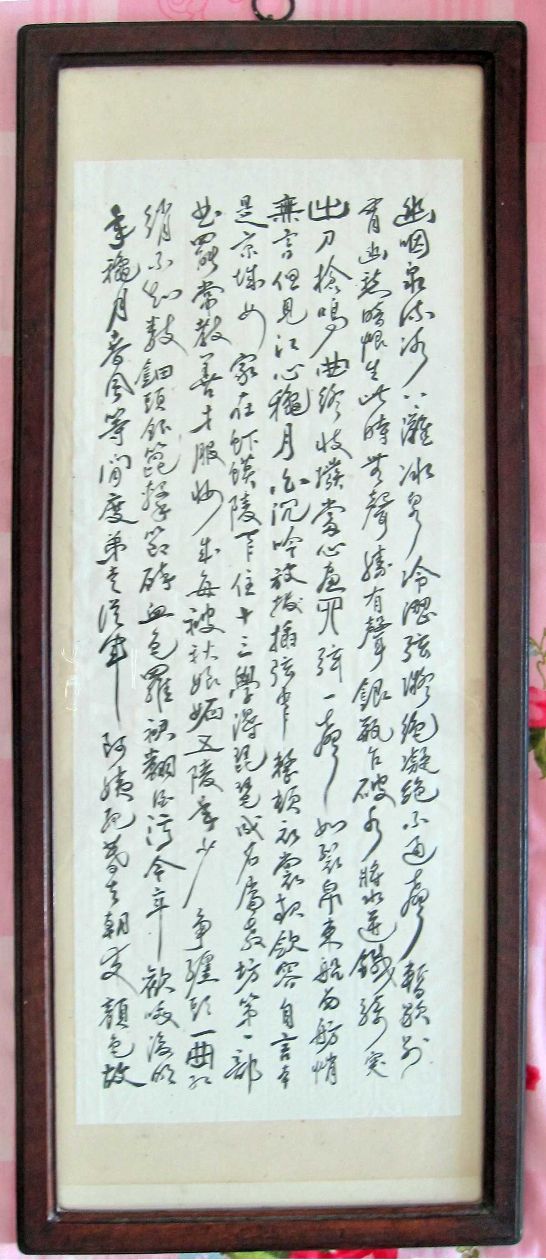 幽咽泉流冰下灘冰泉冷澀弦凝絕凝絕不通聲暫歇別
有幽愁暗恨生此時無聲勝有聲銀瓶乍破水漿迸鐵騎突
出刀槍鳴曲終收撥當心畫四弦一聲如裂帛東船西舫悄
無言但見江心秋月白沉吟放撥插弦中整頓衣裳起斂容自言本
是京城女家在蝦蟆陵下住十三學得琵琶成名屬教坊第一部
曲罷常教善才服妝成每被秋娘妒五陵年少爭纏頭一曲紅
綃不知數鈿頭銀篦擊節碎血色羅裙翻酒污今年歡笑復明
年秋月春風等閒度弟走從軍阿姨死暮去朝來顏色故